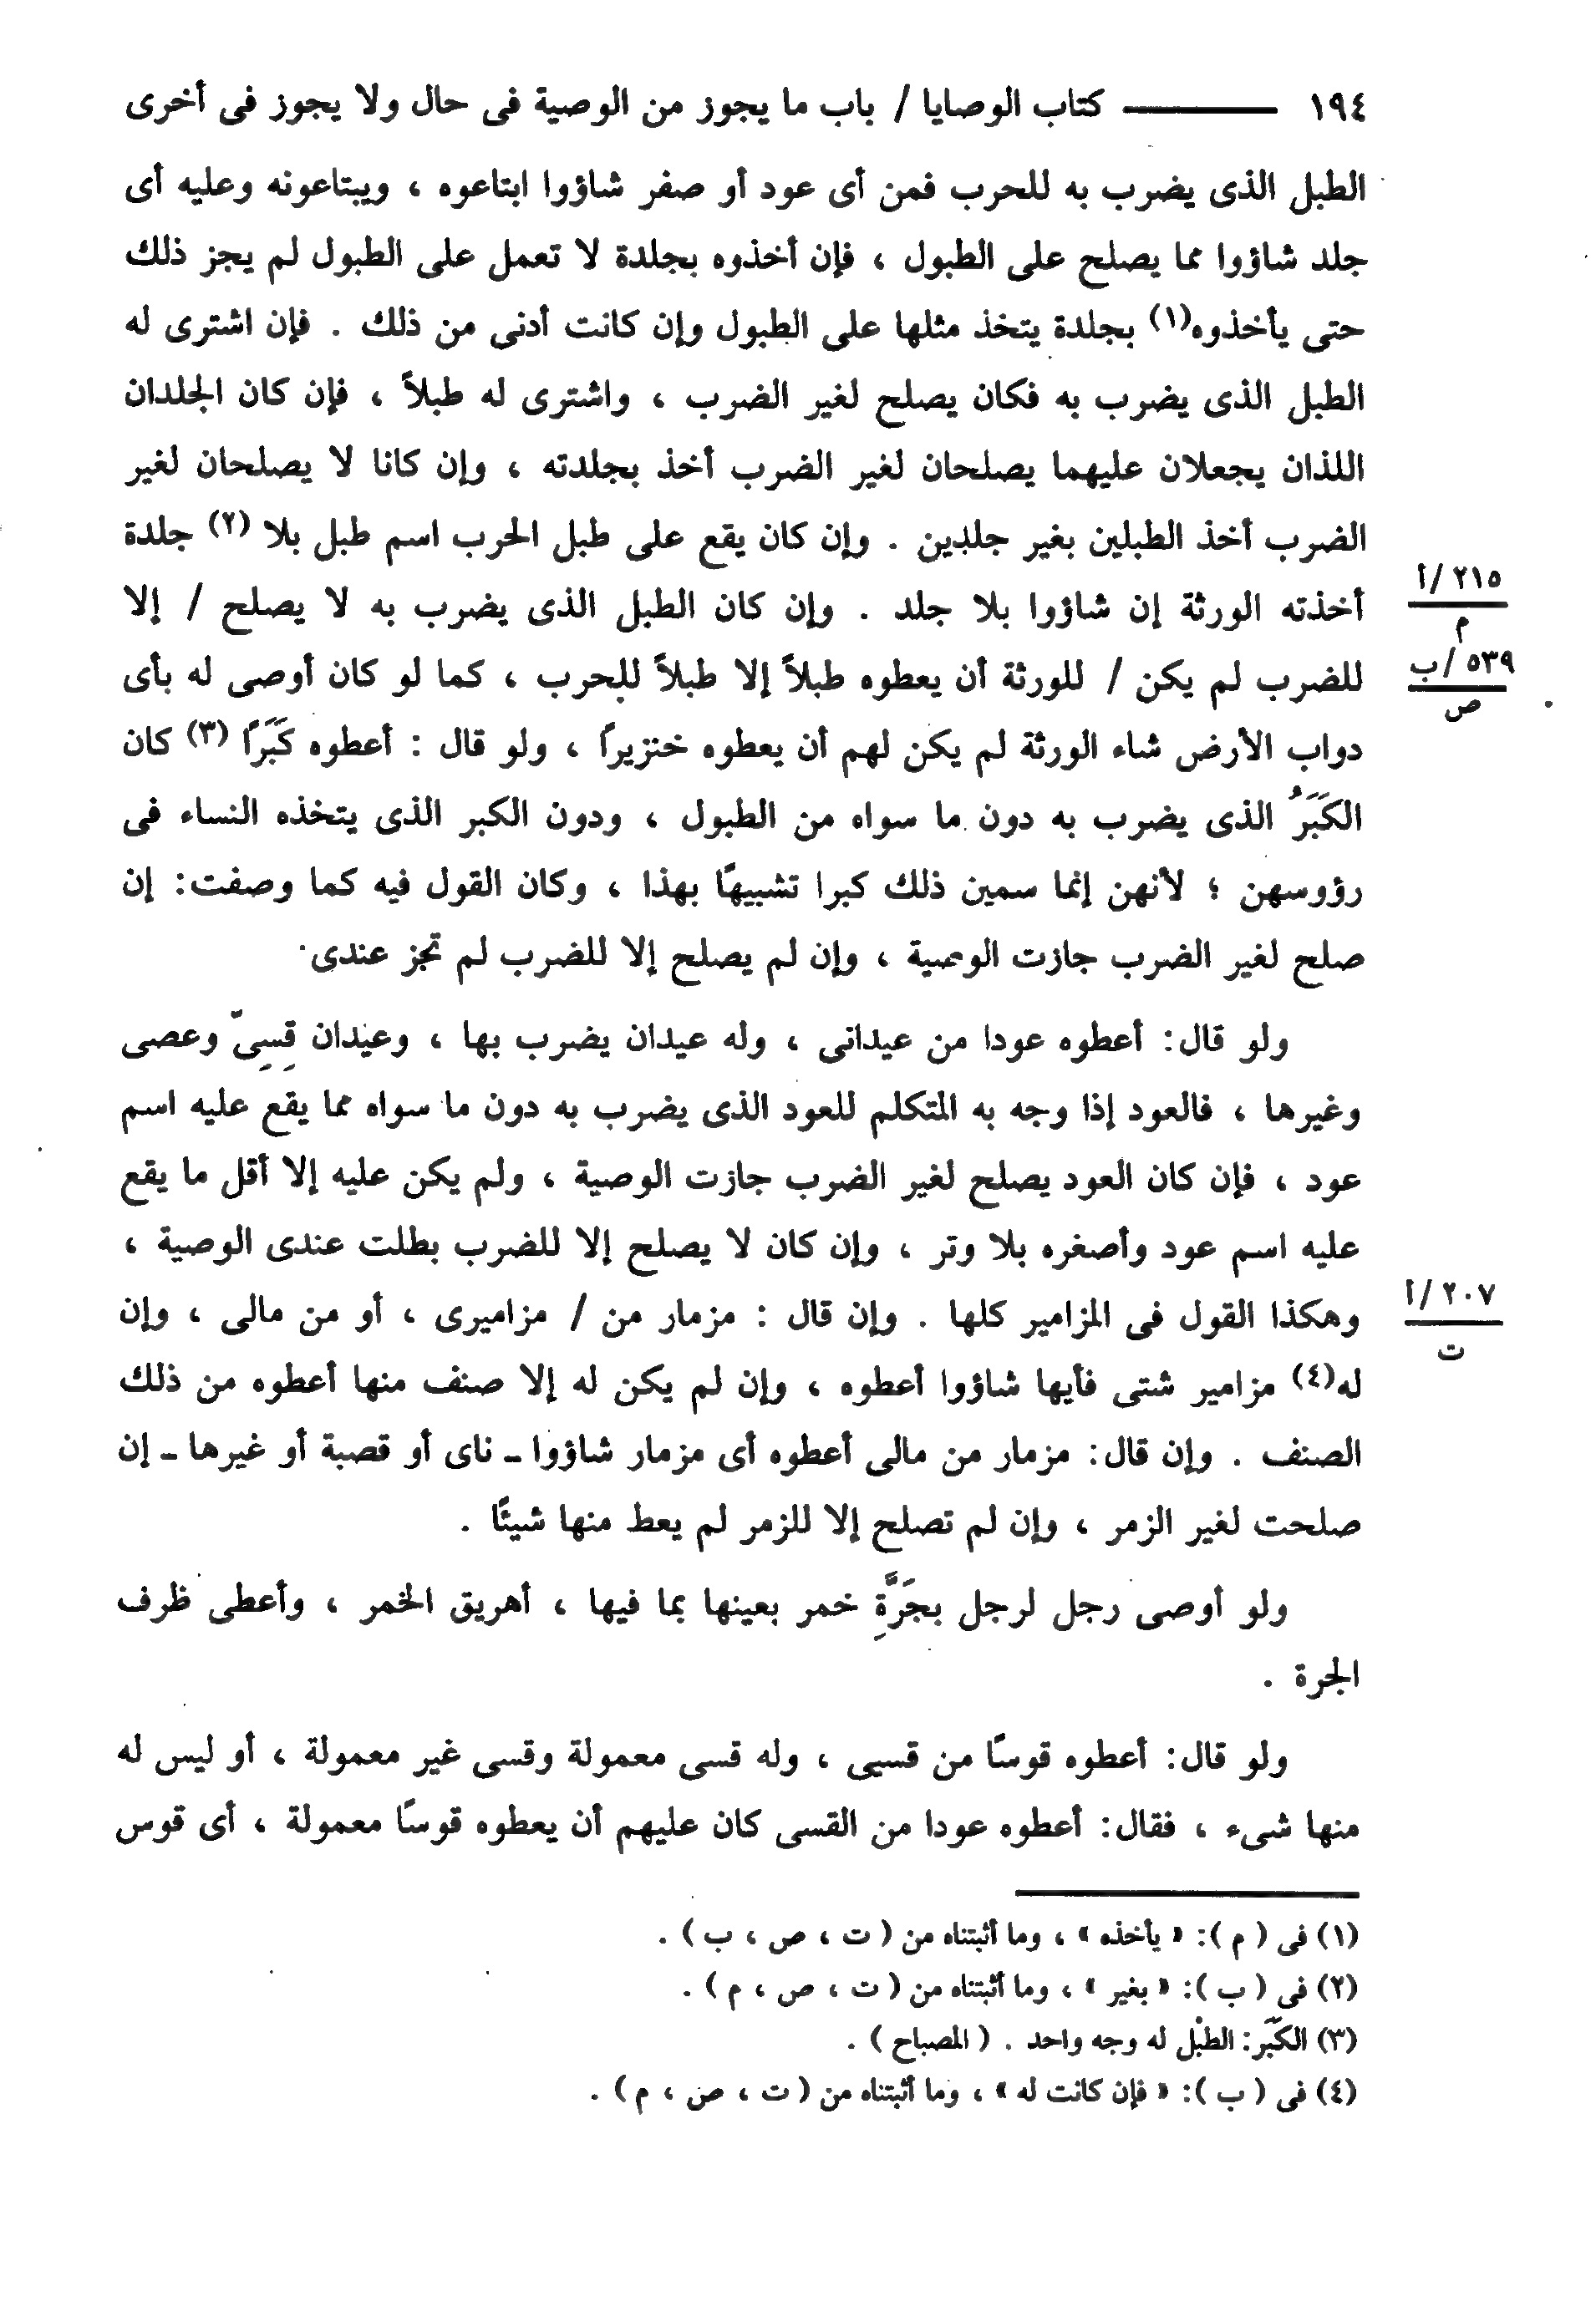 ١٩٤ ــــــــــ كتاب الوصايا / باب ما يجوز من الوصية فى حال ولا يجوز فى أخرى
الطبل الذى يضرب به للحرب فمن أى عود أو صفر شاؤوا ابتاعوه ، ويبتاعونه وعليه أى
جلد شاؤوا مما يصلح على الطبول ، فإن أخذوه بجلدة لا تعمل على الطبول لم يجز ذلك
حتى يأخذوه(١) بجلدة يتخذ مثلها على الطبول وإن كانت أدنى من ذلك . فإن اشترى له
الطبل الذى يضرب به فكان يصلح لغير الضرب ، واشترى له طبلاً ، فإن كان الجلدان
اللذان يجعلان عليهما يصلحان لغير الضرب أخذ بجلدته ، وإن كانا لا يصلحان لغير
الضرب أخذ الطبلين بغير جلدين . وإن كان يقع على طبل الحرب اسم طبل بلا (٢) جلدة
أخذته الورثة إن شاؤوا بلا جلد . وإن كان الطبل الذى يضرب به لا يصلح / إلا
٢١٥ /أ
م
للضرب لم يكن / للورثة أن يعطوه طبلاً إلا طبلاً للحرب ، كما لو كان أوصى له بأى
٥٣٩ /ب
ص
دواب الأرض شاء الورثة لم يكن لهم أن يعطوه خنزيراً ، ولو قال : أعطوه كَبَرًا (٣) كان
الكَبَرُ الذى يضرب به دون ما سواه من الطبول ، ودون الكبر الذى يتخذه النساء فى
رؤوسهن ؛ لأنهن إنما سمين ذلك كبرا تشبيهًا بهذا ، وكان القول فيه كما وصفت: إن
صلح لغير الضرب جازت الوصية ، وإن لم يصلح إلا للضرب لم تجز عندى.
ولو قال: أعطوه عودا من عيدانى ، وله عيدان يضرب بها ، وعيدان قِسِىّ وعصى
وغيرها ، فالعود إذا وجه به المتكلم للعود الذى يضرب به دون ما سواه مما يقع عليه اسم
عود ، فإن كان العود يصلح لغير الضرب جازت الوصية ، ولم يكن عليه إلا أقل ما يقع
عليه اسم عود وأصغره بلا وتر ، وإن كان لا يصلح إلا للضرب بطلت عندى الوصية ،
وهكذا القول فى المزامير كلها . وإن قال : مزمار من / مزاميرى ، أو من مالى ، وإن
٢٠٧ /أ
ت
له(٤) مزامير شتى فأيها شاؤوا أعطوه ، وإن لم يكن له إلا صنف منها أعطوه من ذلك
الصنف . وإن قال: مزمار من مالى أعطوه أى مزمار شاؤوا ـ ناى أو قصبة أو غيرها ـ إن
صلحت لغير الزمر ، وإن لم تصلح إلا للزمر لم يعط منها شيئًا .
ولو أوصى رجل لرجل بجَرَّةِ خمر بعينها بما فيها ، أهريق الخمر ، وأعطى ظرف
الجرة .
ولو قال: أعطوه قوسًا من قسيى ، وله قسى معمولة وقسى غير معمولة ، أو ليس له
منها شىء ، فقال: أعطوه عودا من القسى كان عليهم أن يعطوه قوسًا معمولة ، أى قوس
(١) فى ( م ): « يأخذه » ، وما أثبتناه من ( ت ، ص ، ب ) .
(٢) فى ( ب ): « بغير » ، وما أثبتناه من ( ت ، ص ، م ) .
(٣) الكَبَر: الطبْل له وجه واحد . ( المصباح ) .
(٤) فى ( ب ): « فإن كانت له » ، وما أثبتناه من ( ت ، ص ، م ) .